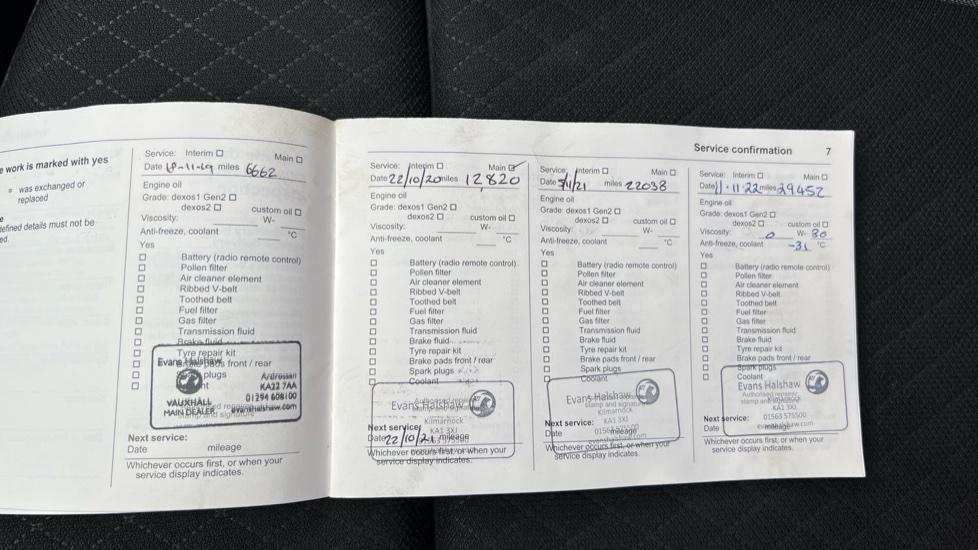 e work is marked with yes
= was exchanged or
replaced
efined details must not be
ed.
Service: Interim ☐ Main ☐
Date 18-11-19 miles 6662
Engine oil
Grade: dexos1 Gen2 ☐
dexos2 ☐ custom oil ☐
Viscosity: W-
Anti-freeze, coolant °C
Yes
☐ Battery (radio remote control)
☐ Pollen filter
☐ Air cleaner element
☐ Ribbed V-belt
☐ Toothed belt
☐ Fuel filter
☐ Gas filter
☐ Transmission fluid
☐ Brake fluid
☐ Tyre repair kit
☐ pads front / rear
☐ plugs
☐
Evans Halshaw
Ardrossan
KA22 7AA
VAUXHALL 01294 608100
MAIN DEALER evanshalshaw.com
Next service:
Date mileage
Whichever occurs first, or when your
service display indicates.
Service confirmation 7
Service: Interim ☐ Main ☑
Date 22/10/20 miles 12,820
Engine oil
Grade: dexos1 Gen2 ☐
dexos2 ☐ custom oil ☐
Viscosity: W-
Anti-freeze, coolant °C
Yes
☐ Battery (radio remote control)
☐ Pollen filter
☐ Air cleaner element
☐ Ribbed V-belt
☐ Toothed belt
☐ Fuel filter
☐ Gas filter
☐ Transmission fluid
☐ Brake fluid
☐ Tyre repair kit
☐ Brake pads front / rear
☐ Spark plugs
☐ Coolant
Evans Halshaw
Kilmarnock
KA1 3XJ
Next service:
Date 22/10/21 mileage
Whichever occurs first, or when your
service display indicates.
Service: Interim ☐ Main ☐
Date /11/21 miles 22038
Engine oil
Grade: dexos1 Gen2 ☐
dexos2 ☐ custom oil ☐
Viscosity: W-
Anti-freeze, coolant °C
Yes
☐ Battery (radio remote control)
☐ Pollen filter
☐ Air cleaner element
☐ Ribbed V-belt
☐ Toothed belt
☐ Fuel filter
☐ Gas filter
☐ Transmission fluid
☐ Brake fluid
☐ Tyre repair kit
☐ Brake pads front / rear
☐ Spark plugs
☐ Coolant
Evans Halshaw
stamp and signature
Kilmarnock
KA1 3XJ
01563 575500
Next service:
Date mileage
Whichever occurs first, or when your
service display indicates.
Service: Interim ☐ Main ☐
Date 11.11.22 miles 29452
Engine oil
Grade: dexos1 Gen2 ☐
dexos2 ☐ custom oil ☐
Viscosity: 0 W- 30
Anti-freeze, coolant -31 °C
Yes
☐ Battery (radio remote control)
☐ Pollen filter
☐ Air cleaner element
☐ Ribbed V-belt
☐ Toothed belt
☐ Fuel filter
☐ Gas filter
☐ Transmission fluid
☐ Brake fluid
☐ Tyre repair kit
☐ Brake pads front / rear
☐ Spark plugs
☐ Coolant
Evans Halshaw
Authorised repairer
stamp and signature
Kilmarnock
KA1 3XJ
01563 575500
evanshalshaw.com
Next service:
Date mileage
Whichever occurs first, or when your
service display indicates.